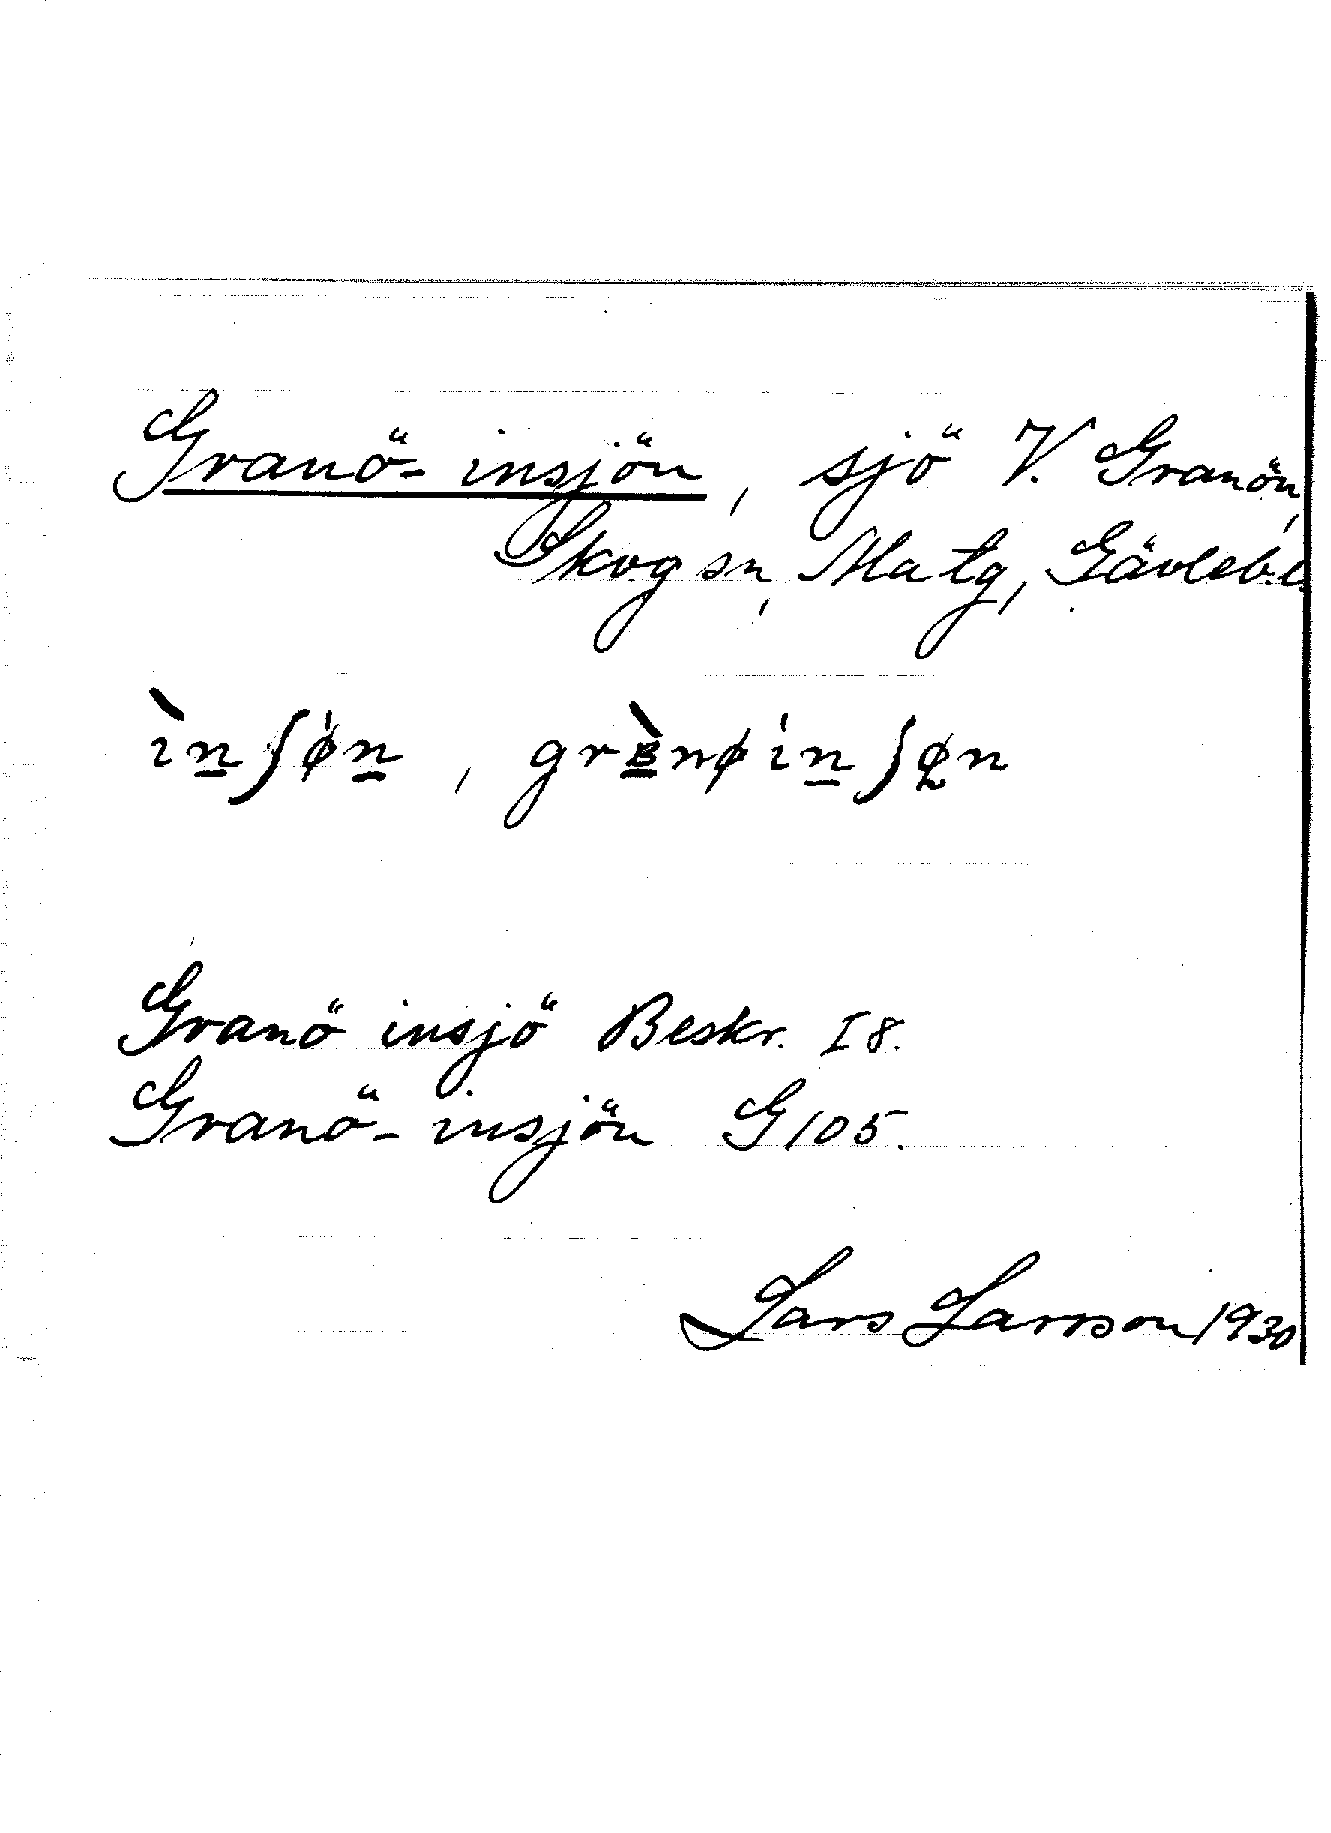 Granö-insjön, sjö V. Granön,
Skog sn, Ala tg, Gävleb. l.
ìn̲ʃǿn̲, grà̲nøín̲ʃøn
Granö insjö Beskr. I 8.
Granö-insjön G 105.
Lars Larsson 1930